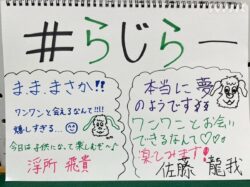 #らじらー
まままさか!!
ワンワンと会えるなんて!!!!
嬉しすぎる...
今日は子供になって楽しむぞ~♪
浮所 飛貴
本当に夢
のようですする
ワンワンとお会い
できるなんて♡♡
楽しみます!
佐藤 龍我